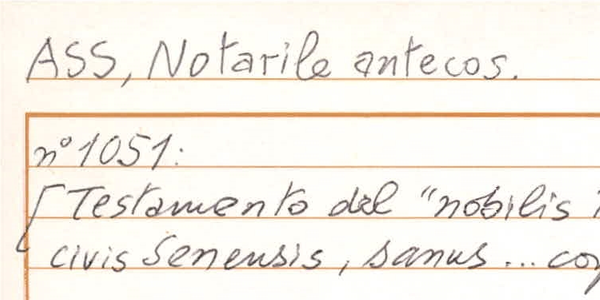 ASS, Notarile antecos.
n° 1051:
[Testamento del "nobilis
civis Senensis, sanus...